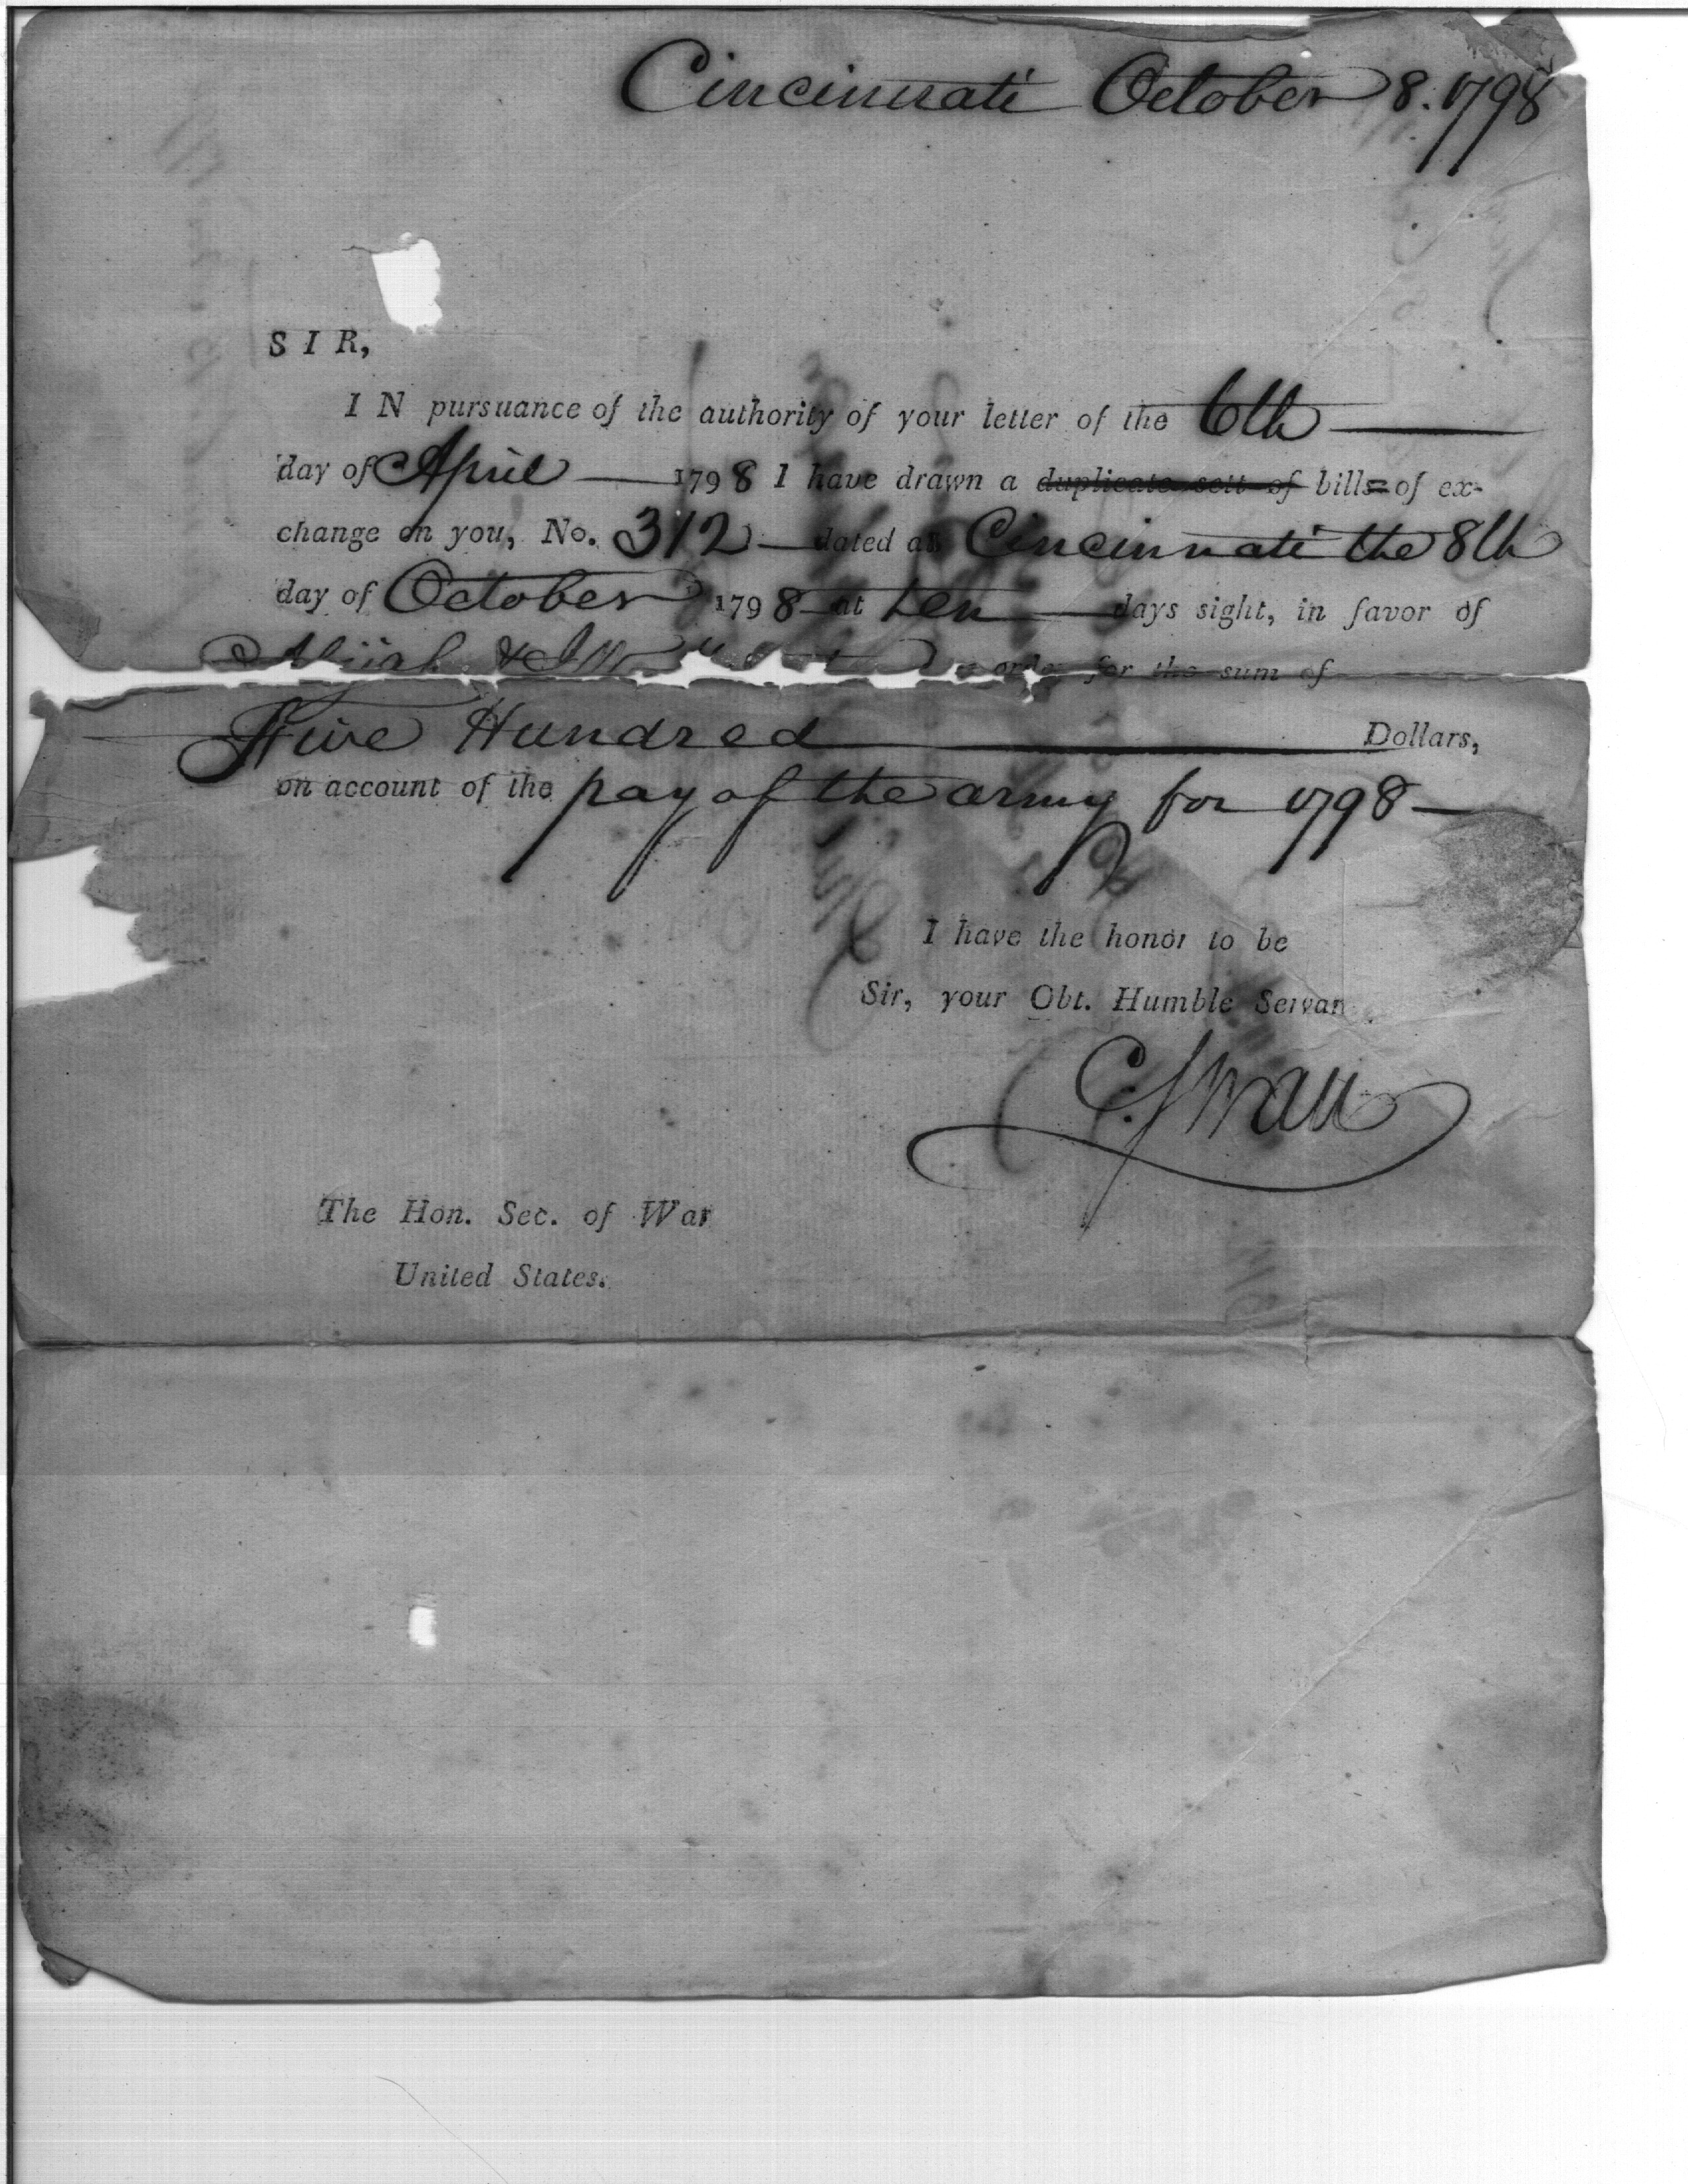 Cincinnati October 8. 1798
SIR,
IN pursuance of the authority of your letter of the 6th
day of April 1798 I have drawn a duplicate sett of bills of ex-
change on you, No. 312 dated at Cincinnati the 8th
day of October 1798 at ten days sight, in favor of
& or order for the sum of
Five Hundred Dollars,
on account of the pay of the army for 1798
I have the honor to be
Sir, your Obt. Humble Servan
C. Swan
The Hon. Sec. of War
United States.